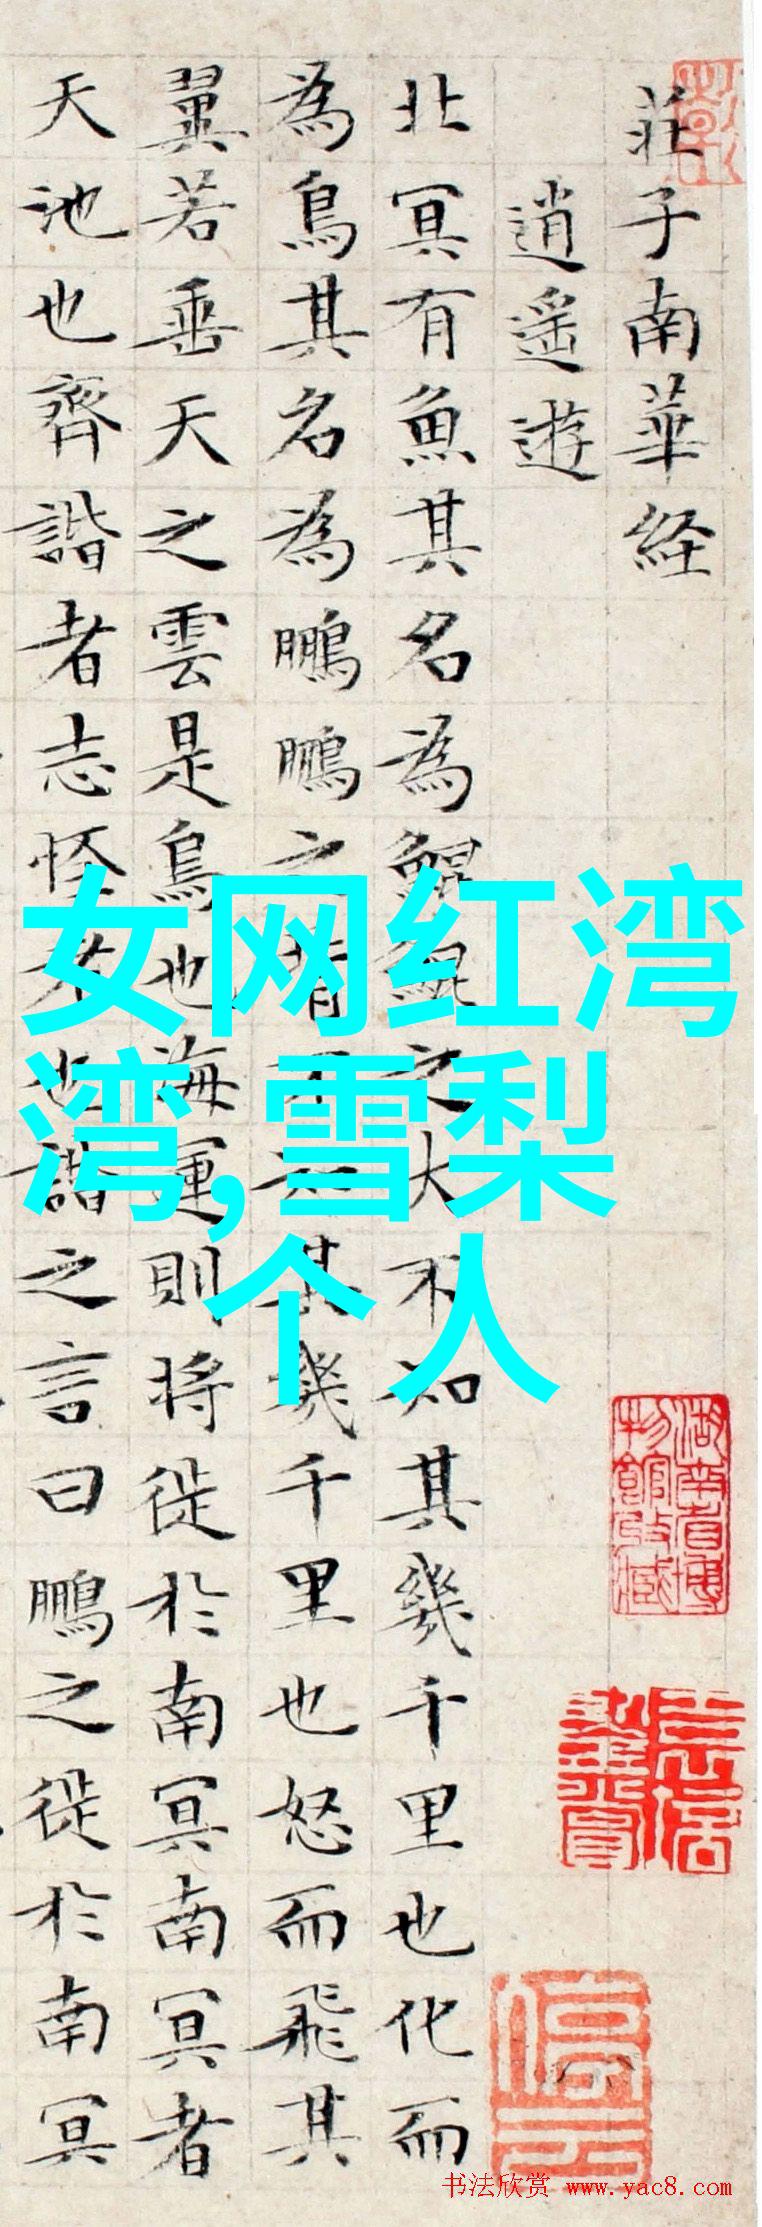 莊子南華経
逍遥遊
北冥有魚其名為鯤鯤之大不知其幾千里也化而
為鳥其名為鵬鵬之背不知其幾千里也怒而飛其
翼若垂天之雲是鳥也海運則将徙於南冥南冥者
天池也齊諧者志怪者也諧之言曰鵬之徙於南冥
女网红湾
湾,雪梨
个人
湖南省博
物館收藏
停云
书法欣赏 www.yac8.com